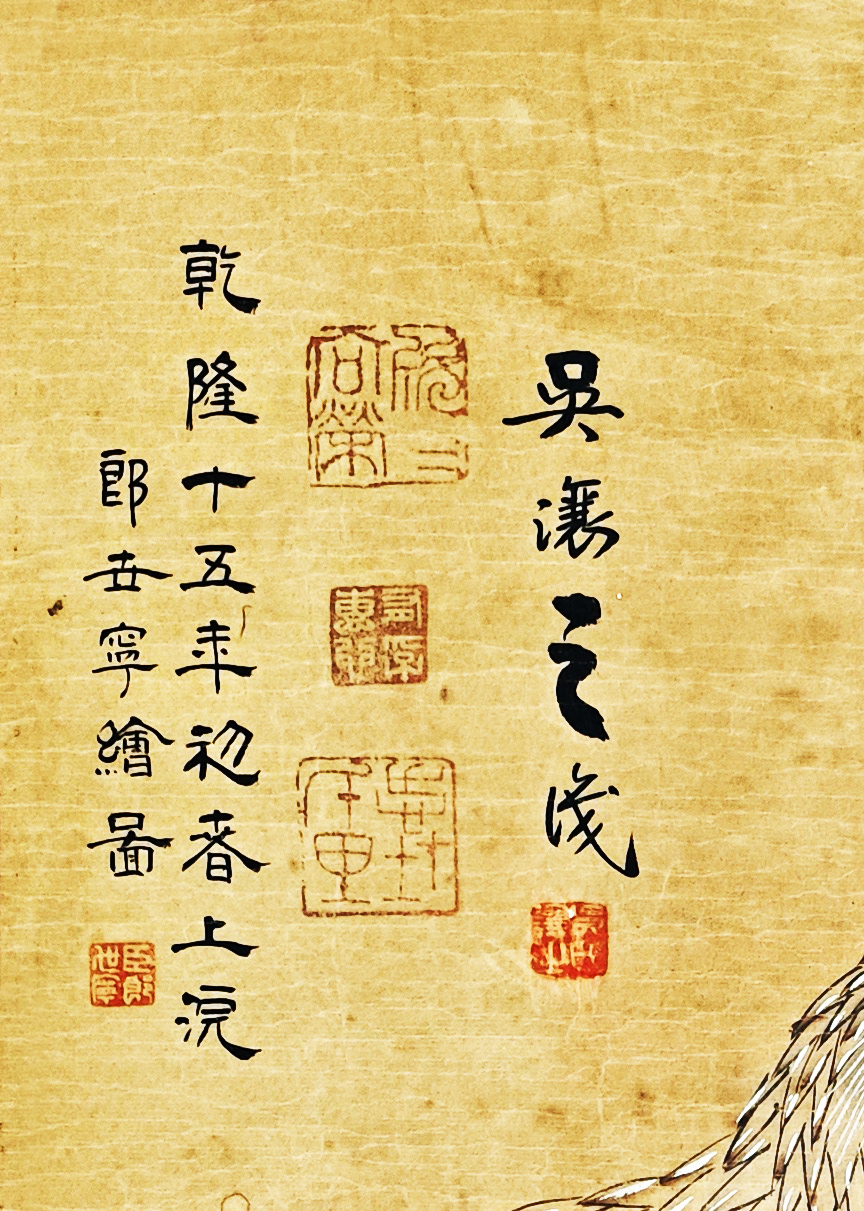 吳讓之識
吳氏讓之
乾隆十五年初春上浣
郎世寧繪圖
臣郎世寧